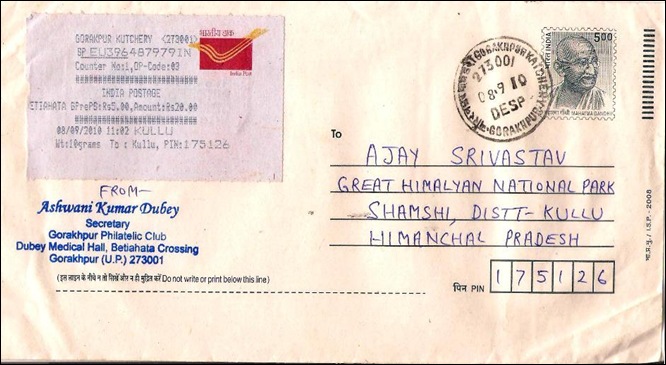 GORAKPUR KUTCHERY <273001>
BP EU396487979IN
Counter No:1,OP-Code:03
INDIA POSTAGE
BETIAHATA BPrePS:Rs5.00,Amount:Rs20.00
08/09/2010 11:02 KULLU
Wt:10grams To : Kullu, PIN:175126
भारतीय डाक
India Post
GORAKHPUR KATCHERY
273001
08-9 10
DESP
GORAKHPUR
भारत INDIA
5.00
महात्मा गाँधी MAHATMA GANDHI
To
AJAY SRIVASTAV
GREAT HIMALYAN NATIONAL PARK
SHAMSHI, DISTT-KULLU
HIMANCHAL PRADESH
पिन PIN 175126
FROM—
Ashwani Kumar Dubey
Secretary
Gorakhpur Philatelic Club
Dubey Medical Hall, Betiahata Crossing
Gorakhpur (U.P.) 273001
(इस लाइन के नीचे न तो लिखें और न ही मुद्रित करें Do not write or print below this line)
भा.प्र.मु. / I.S.P. - 2008